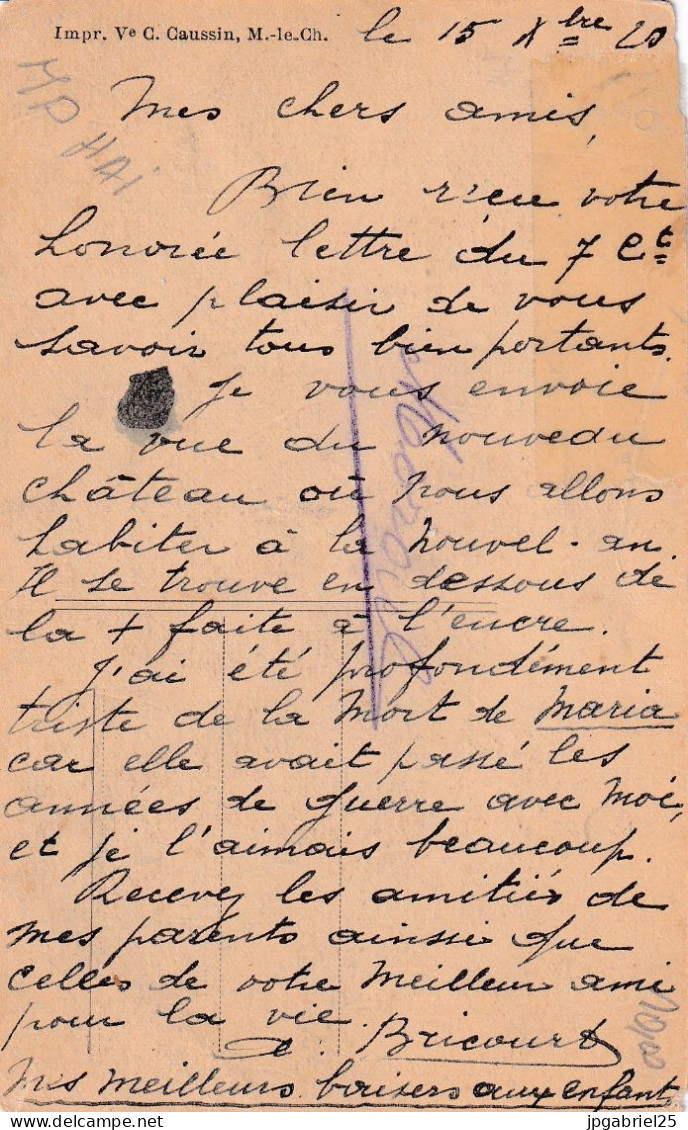 Impr. Ve C. Caussin, M.-le-Ch.
le 15 Xbre 20
MP
HAI
Mes chers amis,
Bien reçu votre
honorée lettre du 7 Ct
avec plaisir de vous
savoir tous bien portants.
Je vous envoie
la vue du nouveau
château où nous allons
habiter à la nouvel-an.
Il se trouve en dessous de
la + faite à l'encre.
J'ai été profondément
triste de la mort de Maria
car elle avait passé les
années de guerre avec moi,
et je l'aimais beaucoup.
Recevez les amitiés de
mes parents ainssi que
celles de votre meilleur ami
pour la vie.
Bricourt
Mes meilleurs baisers aux enfants.
jpgabriel25